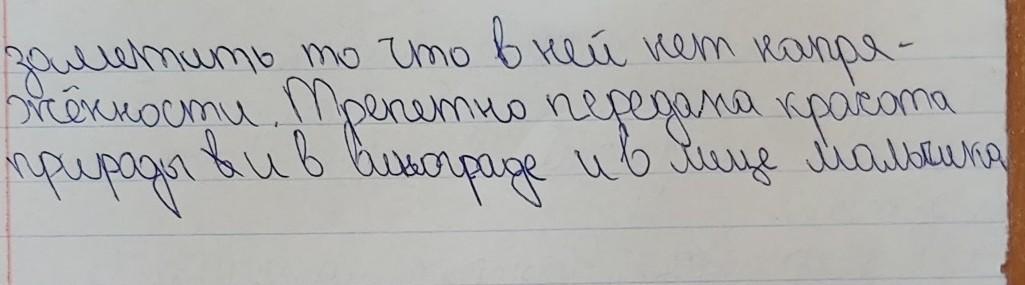 заметить то что в ней нет напря-
жённости. Трепетно передана красота
природы и в винограде и в лице мальчика